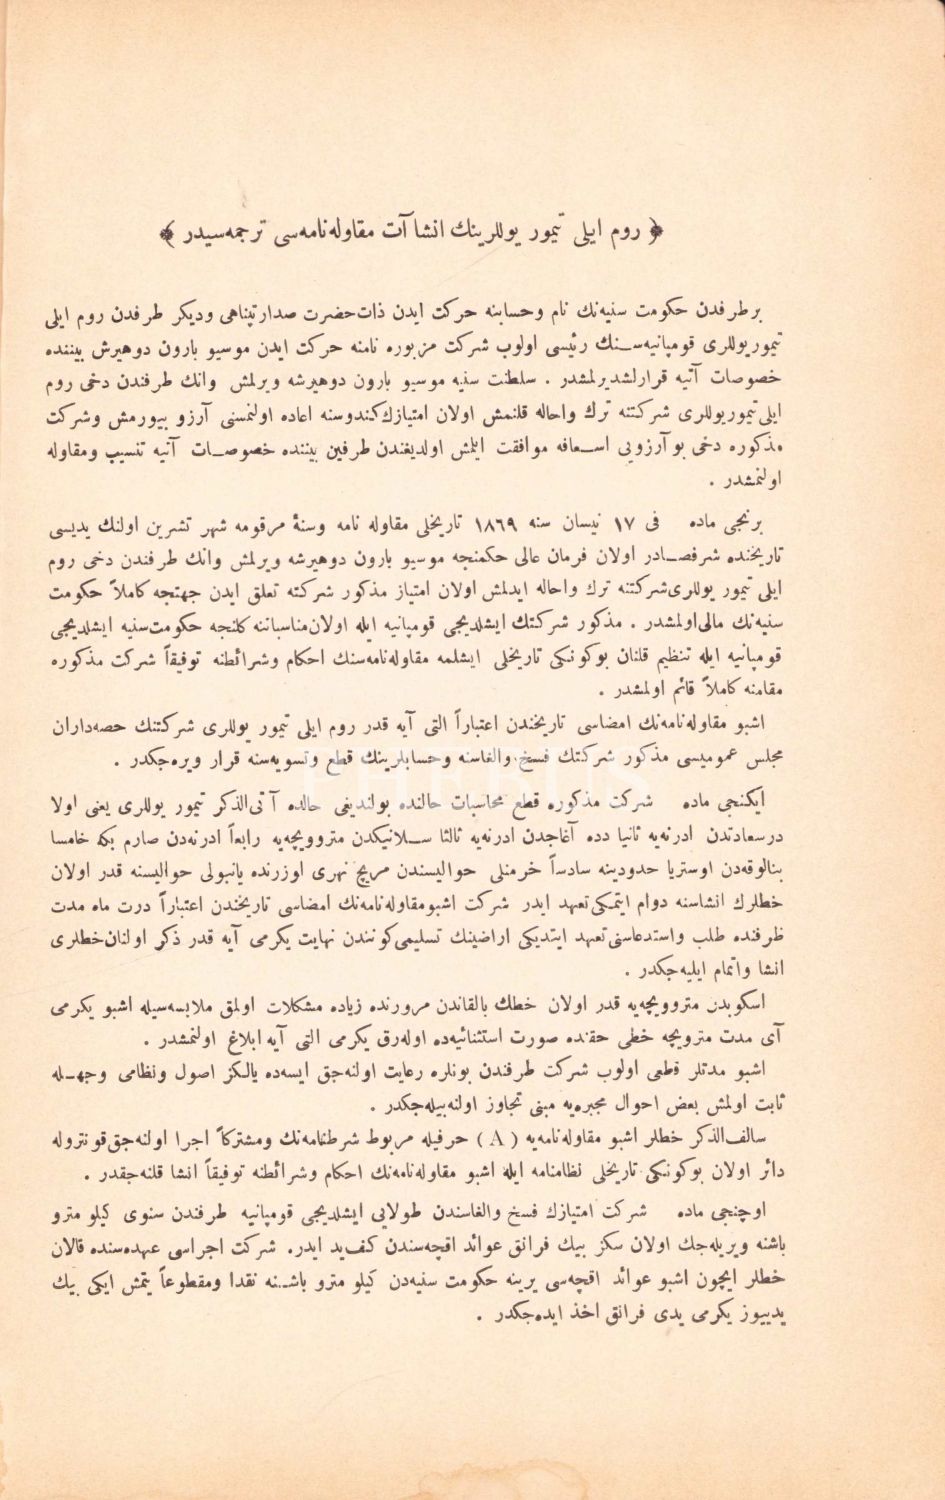 ﴿ روم ایلی تیمور یوللرینك انشاآت مقاوله‌نامه‌سی ترجمه‌سیدر ﴾
برطرفدن حكومت سنیه‌نك نام وحسابنه حركت ایدن ذات‌حضرت صدارتپناهی ودیكر طرفدن روم ایلی
تیموریوللری قومپانیه‌سـنك رئیسی اولوب شركت مزبوره نامنه حركت ایدن موسیو بارون دوهیرش بیننده
خصوصات آتیه قرارلشدیرلمشدر . سلطنت سنیه موسیو بارون دوهیرشه ویرلمش وانك طرفندن دخی روم
ایلی‌تیموریوللری شركتنه ترك واحاله قلنمش اولان امتیازك‌كندوسنه اعاده اولنمسنی آرزو بیورمش وشركت
مذكوره دخی بوآرزویی اسـعافه موافقت ایلمش اولدیغندن طرفین بیننده خصوصـات آتیه تنسیب ومقاوله
اولنمشدر .
برنجی ماده فی ١٧ نیسان سنه ١٨٦٩ تاریخلی مقاوله نامه وسنهٔ مرقومه شهر تشرین اولنك یدیسی
تاریخنده شرفصـادر اولان فرمان عالی حكمنجه موسیو بارون دوهیرشه ویرلمش وانك طرفندن دخی روم
ایلی تیمور یوللری‌شركتنه ترك واحاله ایدلمش اولان امتیاز مذكور شركته تعلق ایدن جهتجه كاملاً حكومت
سنیه‌نك مالی‌اولمشدر . مذكور شركتك ایشلدیجی قومپانیه ایله اولان‌مناسباتنه كلنجه حكومت‌سنیه ایشلدیجی
قومپانیه ایله تنظیم قلنان بوكونكی تاریخلی ایشلمه مقاوله‌نامه‌سنك احكام وشرائطنه توفیقاً شركت مذكوره
مقامنه كاملاً قائم اولمشدر .
اشبو مقاوله‌نامه‌نك امضاسی تاریخندن اعتباراً التی آیه قدر روم ایلی تیمور یوللری شركتنك حصه‌داران
مجلس عمومیسی مذكور شركتك فسخ والغاسنه وحسابلرینك قطع وتسویه‌سنه قرار ویره‌جكدر .
ایكنجی ماده شركت مذكوره قطع محاسبات حالنده بولندیغی حالده آتی‌الذكر تیمور یوللری یعنی اولا
درسعادتدن ادرنه‌یه ثانیا دده آغاجدن ادرنه‌یه ثالثا سـلانیكدن متروویچه‌یه رابعاً ادرنه‌دن صارم بكه خامسا
بنالوقه‌دن اوستریا حدودینه سادساً خرمنلی حوالیسندن مریچ نهری اوزرنده یانبولی حوالیسنه قدر اولان
خطلرك انشاسنه دوام ایتمكی‌تعهد ایدر شركت اشبومقاوله‌نامه‌نك امضاسی تاریخندن اعتباراً درت ماه مدت
ظرفنده طلب واستدعاسنی‌تعهد ایتدیكی اراضینك تسلیمی‌كونندن نهایت یكرمی آیه قدر ذكر اولنان‌خطلری
انشا واتمام ایلیه‌جكدر .
اسكوبدن متروویچه‌یه قدر اولان خطك بالقاندن مرورنده زیاده مشكلات اولمق ملابسه‌سیله اشبو یكرمی
آی مدت مترویچه خطی حقنده صورت استثنائیه‌ده اوله‌رق یكرمی التی آیه ابلاغ اولنمشدر .
اشبو مدتلر قطعی اولوب شركت طرفندن بونلره رعایت اولنه‌جق ایسه‌ده یالكز اصول ونظامی وجهـله
ثابت اولمش بعض احوال مجبره‌یه مبنی تجاوز اولنه‌بیله‌جكدر .
سالف‌الذكر خطلر اشبو مقاوله‌نامه‌یه ( A ) حرفیله مربوط شرطنامه‌نك ومشتركاً اجرا اولنه‌جق‌قونتروله
دائر اولان بوكونكی تاریخلی نظامنامه ایله اشبو مقاوله‌نامه‌نك احكام وشرائطنه توفیقاً انشا قلنه‌جقدر .
اوچنجی ماده شركت امتیازك فسخ والغاسندن طولایی ایشلدیجی قومپانیه طرفندن سنوی كیلو مترو
باشنه ویریله‌جك اولان سكز بیك فرانق عوائد اقچه‌سندن كف‌ید ایدر. شركت اجراسی عهده‌سنده قالان
خطلر ایچون اشبو عوائد اقچه‌سی یرینه حكومت سنیه‌دن كیلو مترو باشـنه نقدا ومقطوعاً یتمش ایكی بیك
یدییوز یكرمی یدی فرانق اخذ ایده‌جكدر .